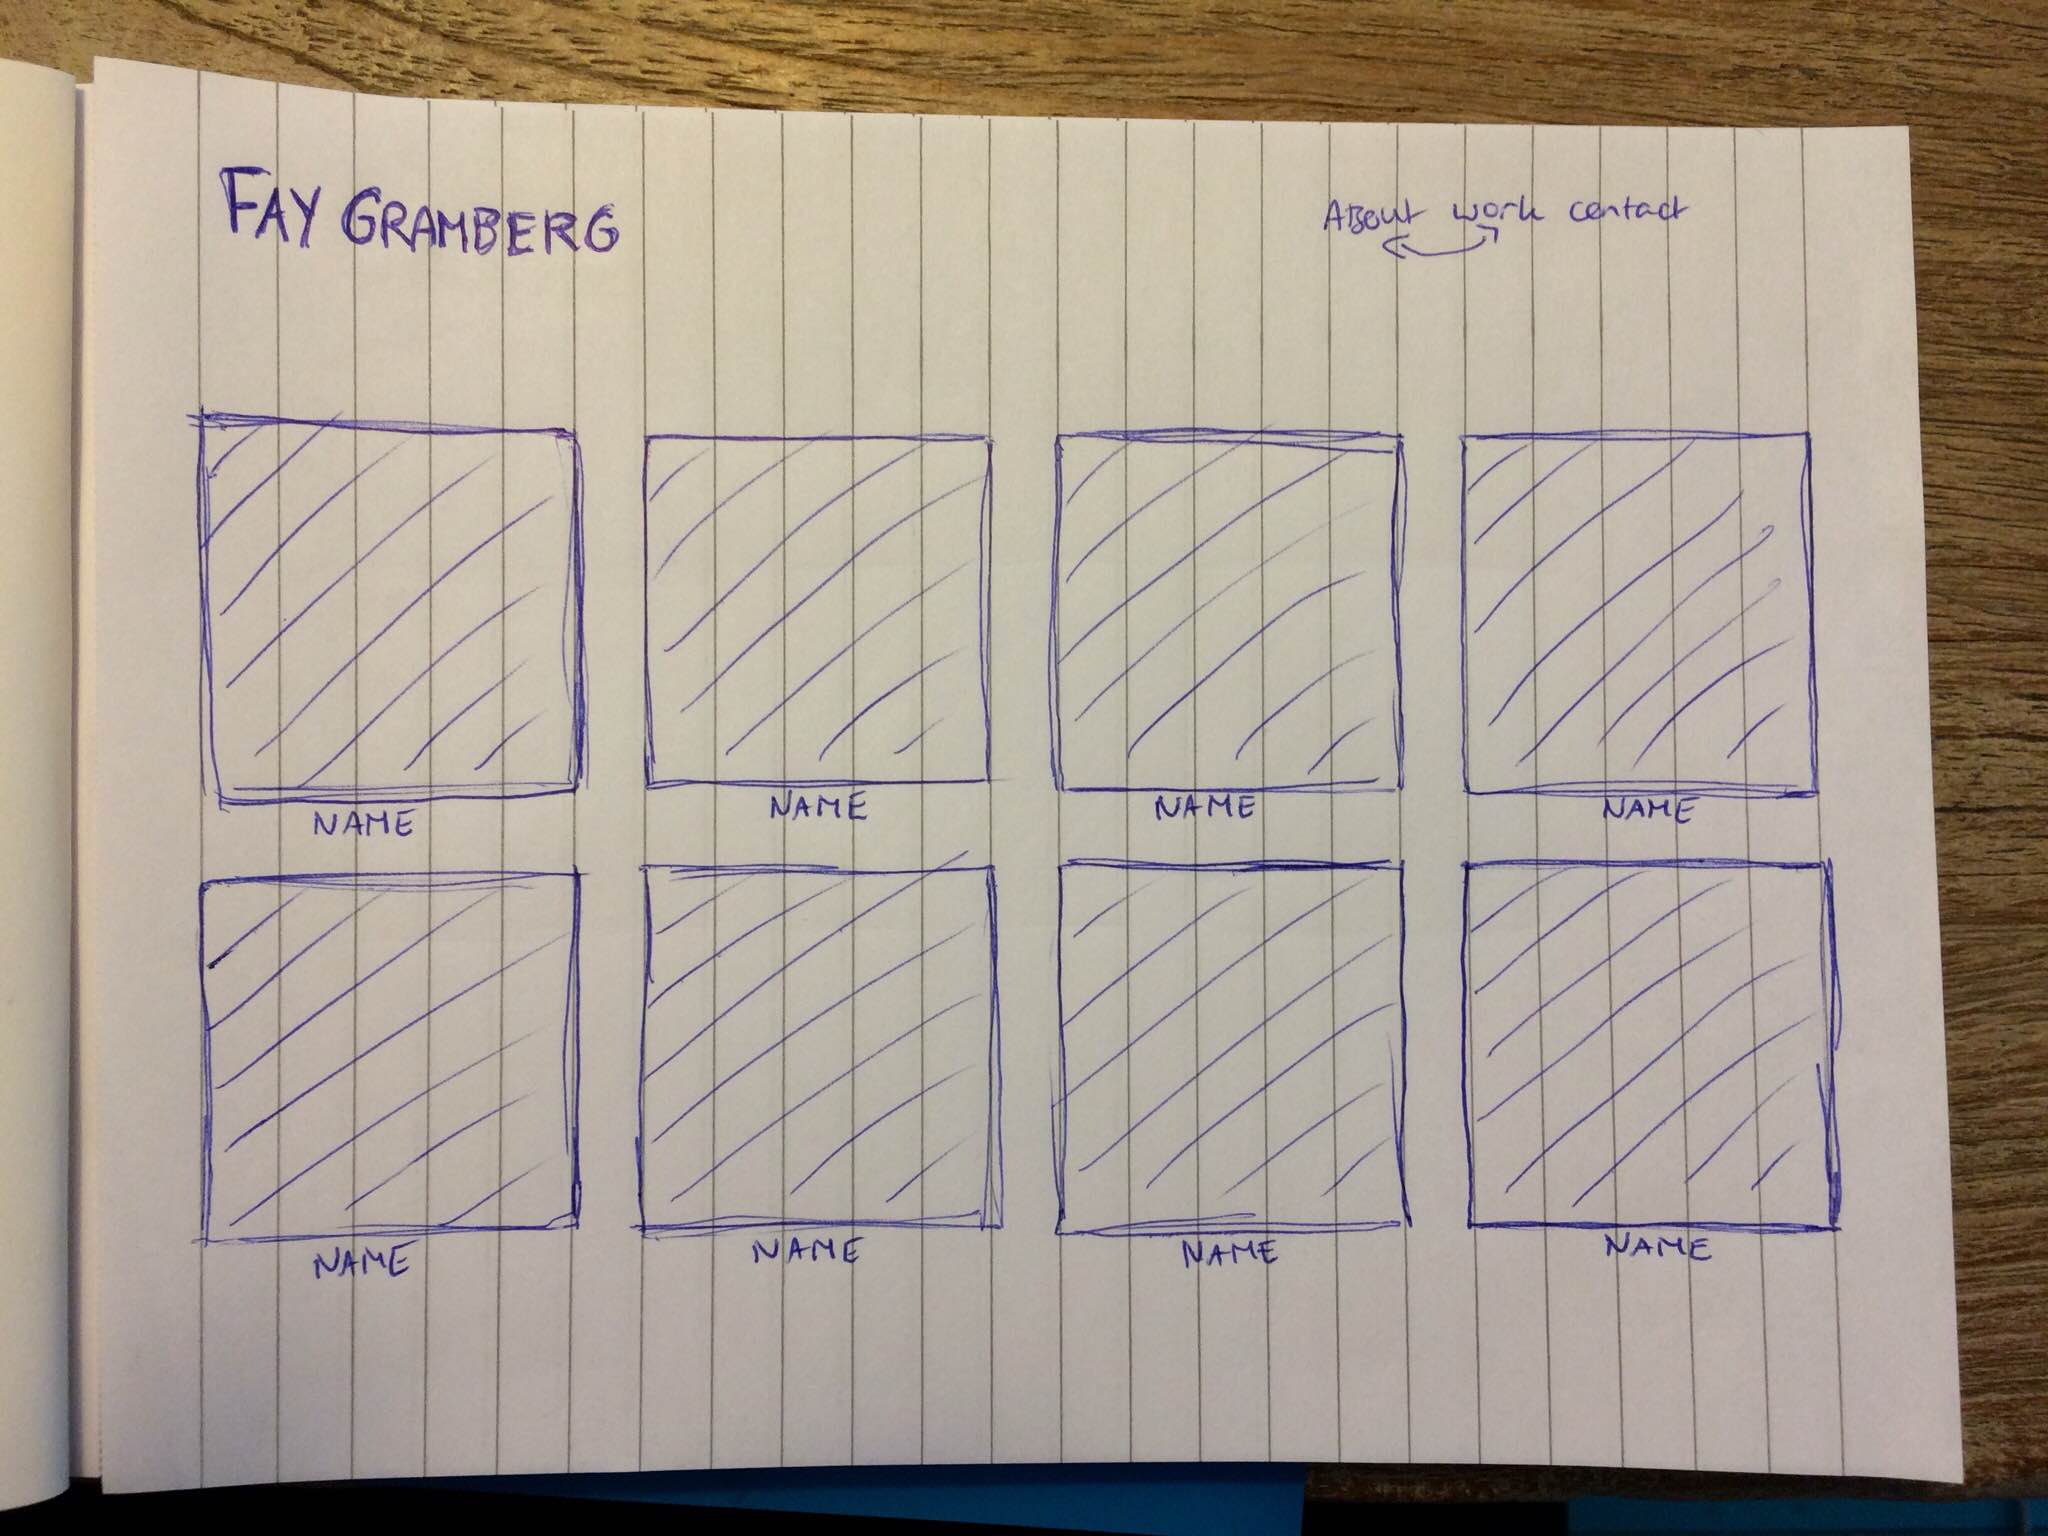 FAY GRAMBERG
About work contact
NAME NAME NAME NAME
NAME NAME NAME NAME